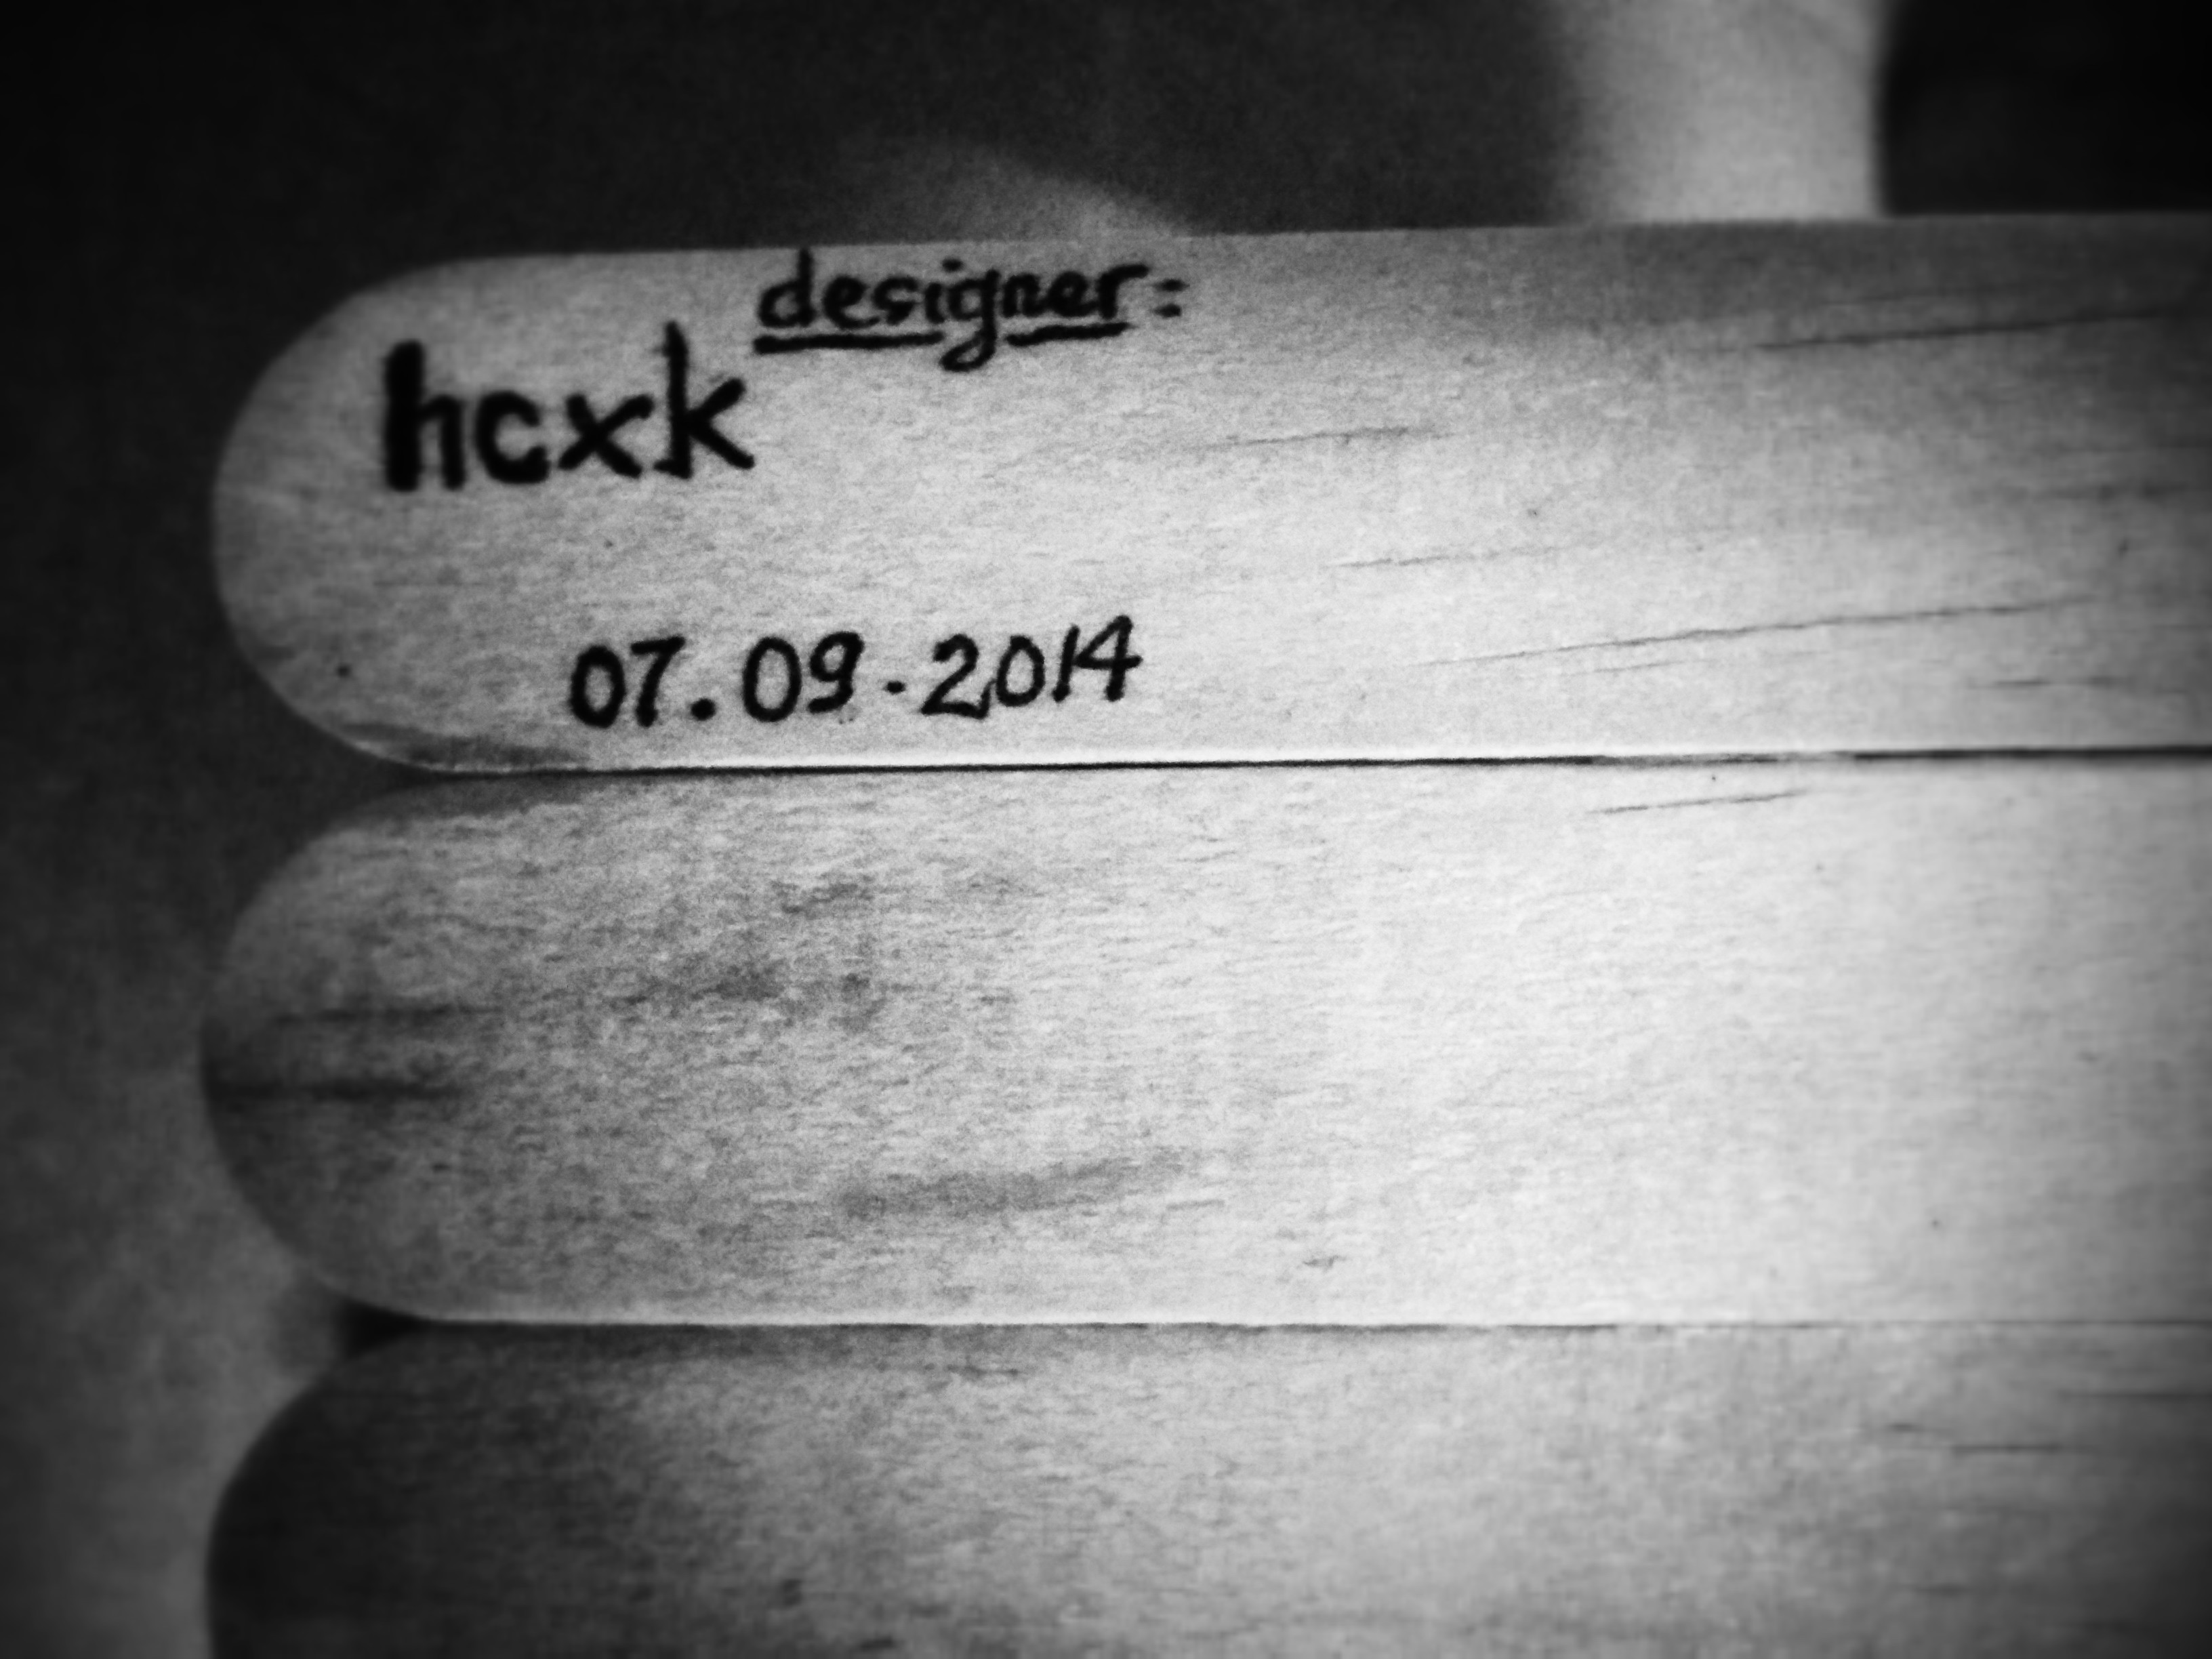 designer:
hcxk
07.09.2014